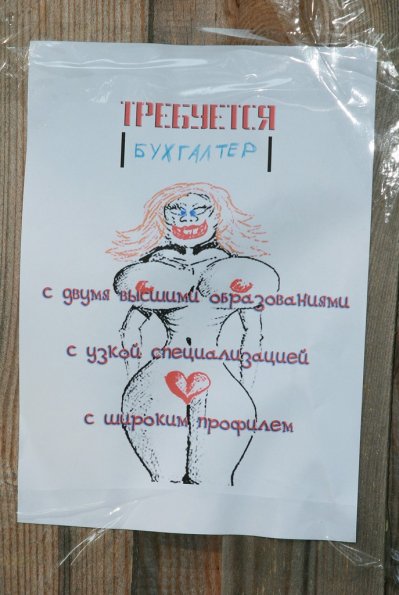 ТРЕБУЕТСЯ
БУХГАЛТЕР
с двумя высшими образованиями
с узкой специализацией
с широким профилем